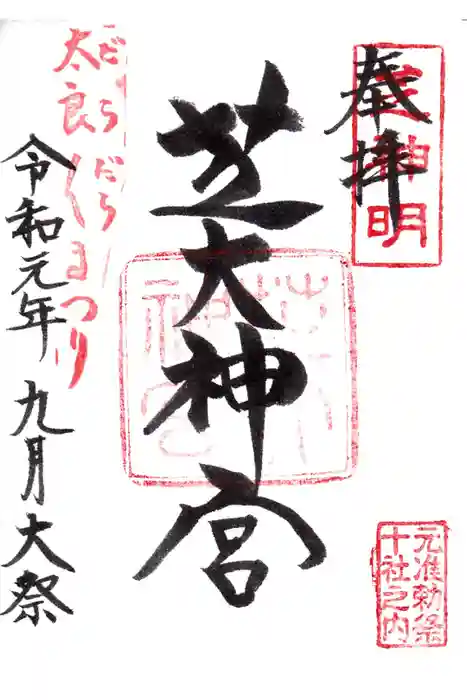 奉拝
芝神明
元准勅祭
十社之内
芝大神宮
だらだら
太郎くまつり
令和元年 九月大祭